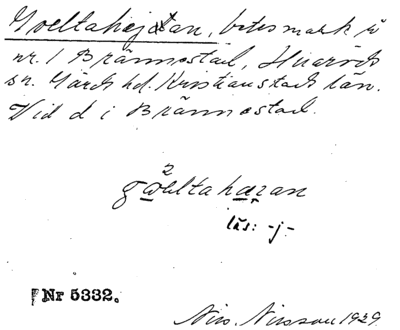 Goeltahejdan, betesmark å
nr. 1 Brännestad, Huaröds
sn. Gärds hd. Kristianstads län.
Vid d i Brännestad.
2
gœltahaʒan
läs: -j-
Nr 5332.
Nils Nilsson 1929.